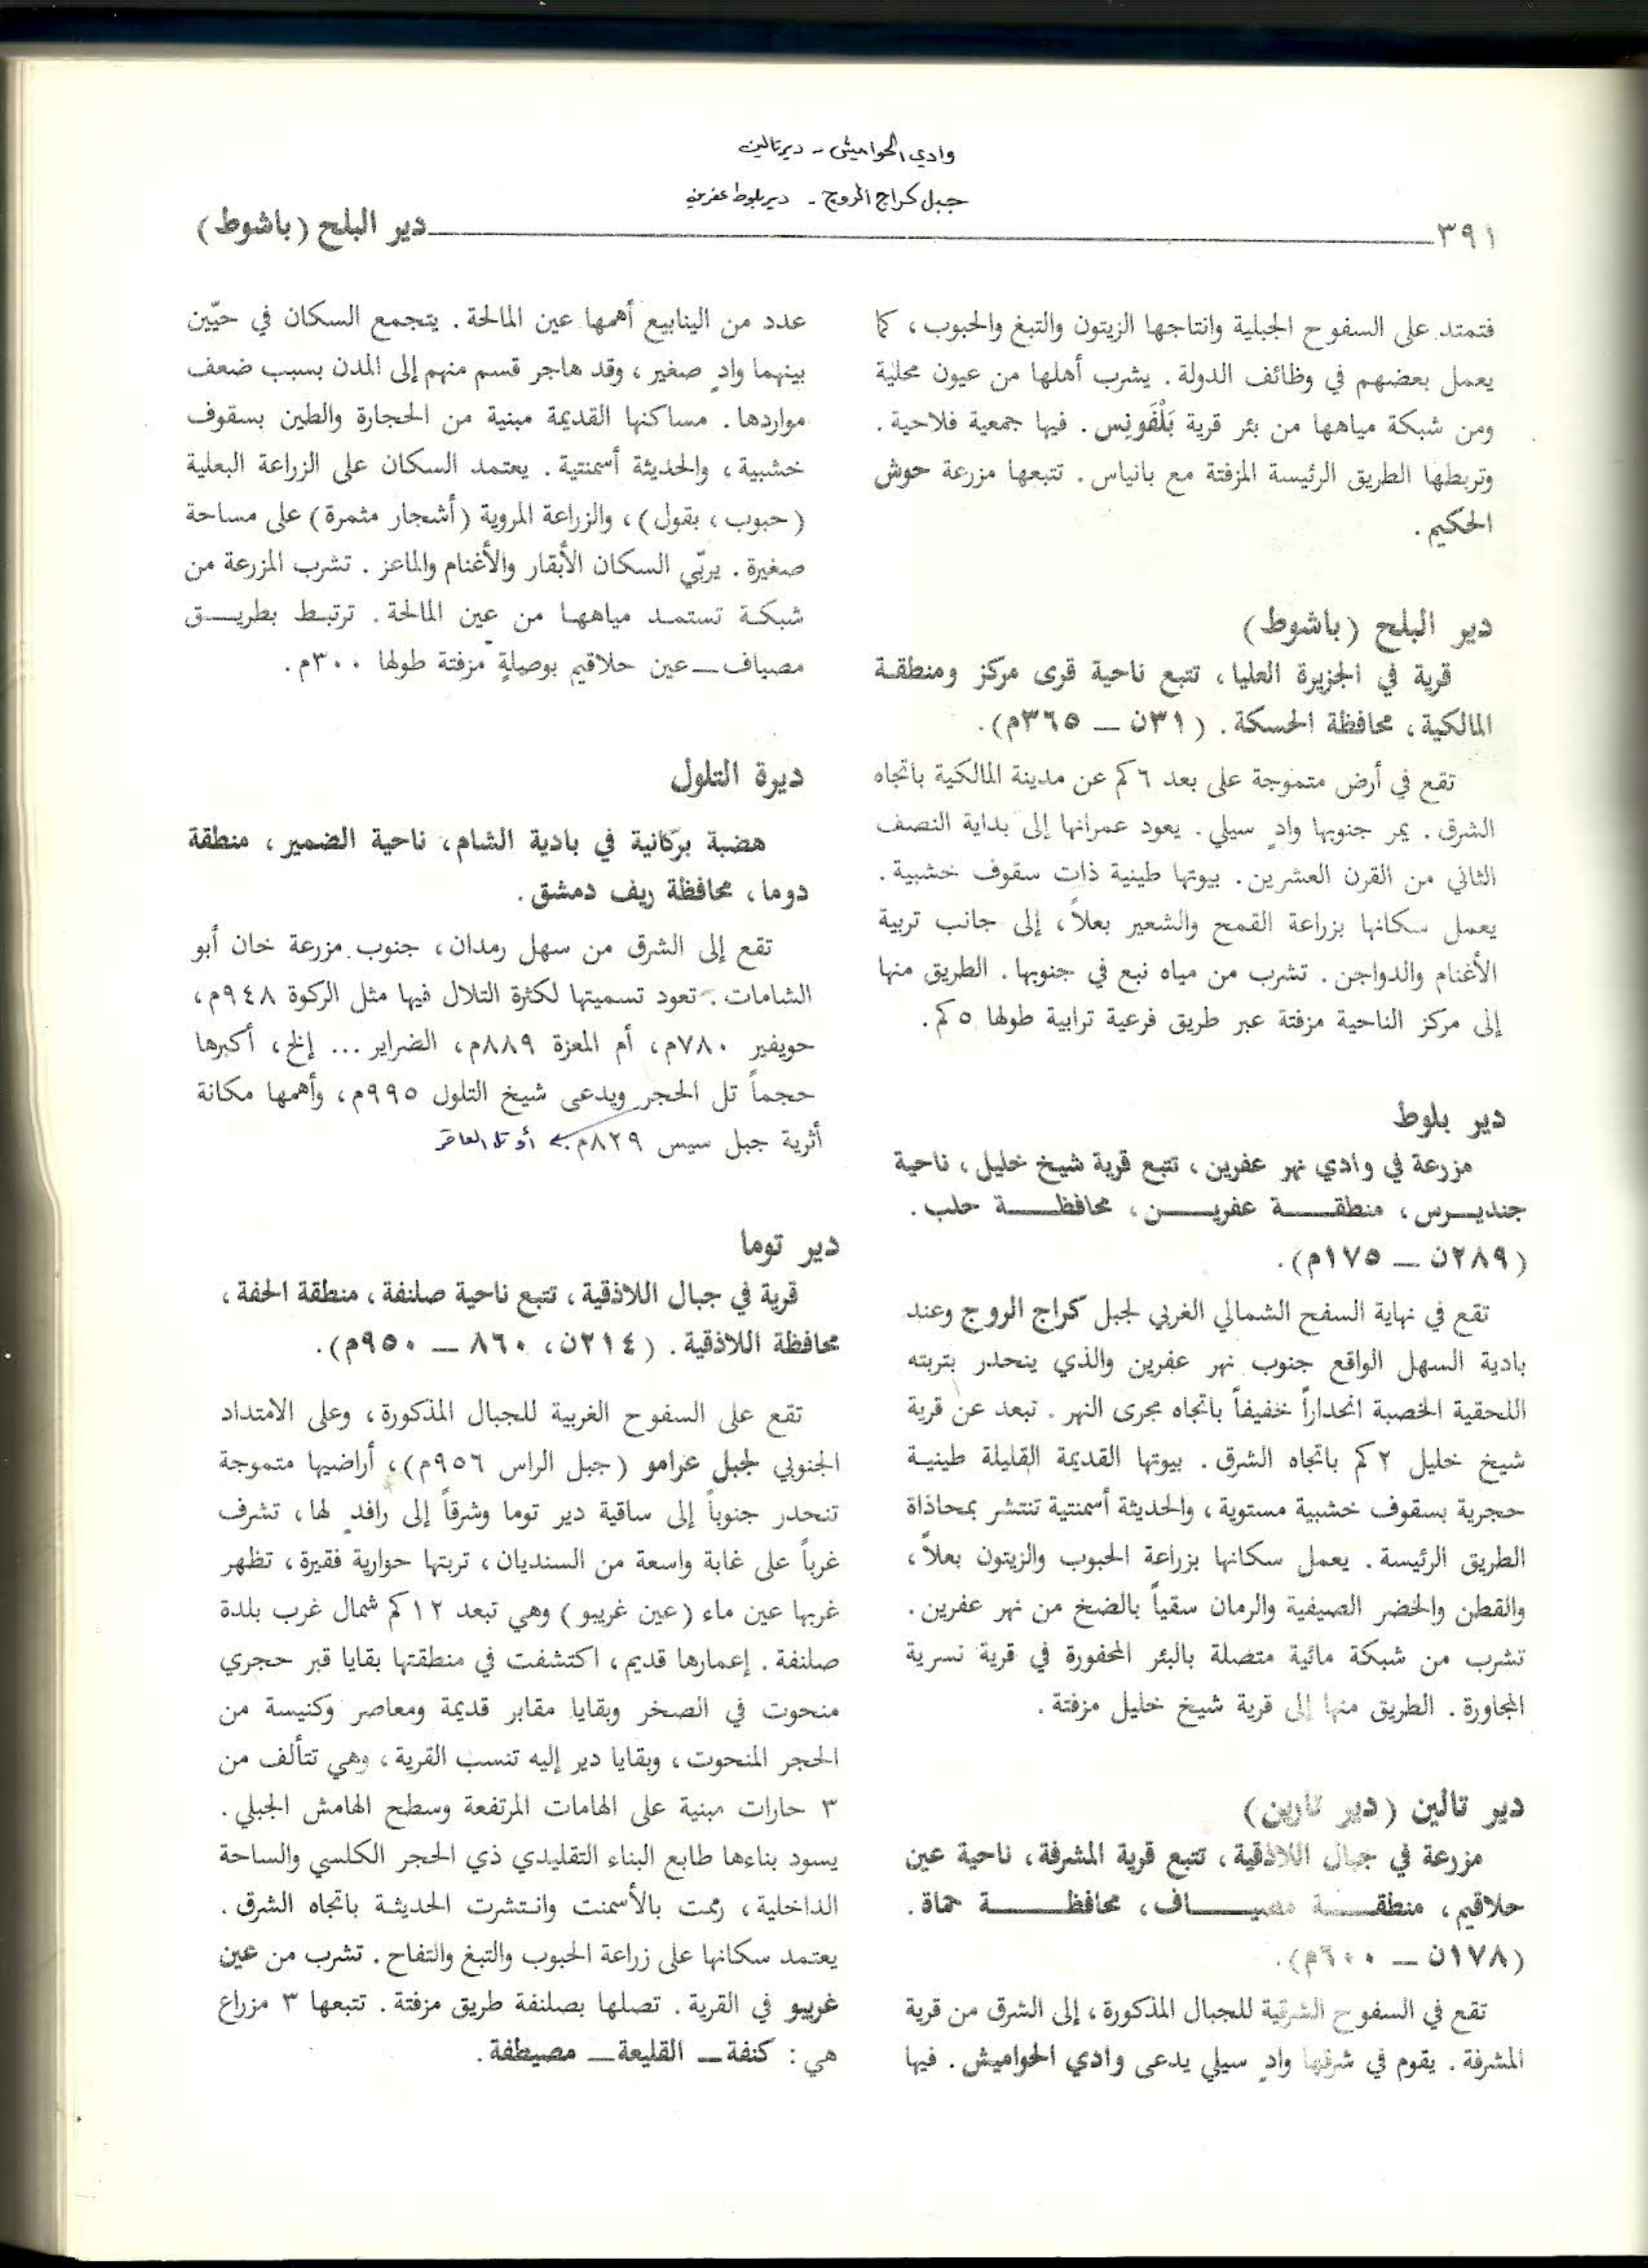 وادي الحواميش - دير تالين
جبل كراج الروج - دير بلوط عفرين
٣٩١ دير البلح (باشوط)
فتمتد على السفوح الجبلية وانتاجها الزيتون والتبغ والحبوب، كما
يعمل بعضهم في وظائف الدولة. يشرب أهلها من عيون محلية
ومن شبكة مياهها من بئر قرية بَلْغُونِس. فيها جمعية فلاحية.
وتربطها الطريق الرئيسة المزفتة مع بانياس. تتبعها مزرعة حوش
الحكيم.
دير البلح (باشوط)
قرية في الجزيرة العليا، تتبع ناحية قرى مركز ومنطقة
المالكية، محافظة الحسكة. (٣١ن ــ ٣٦٥م).
تقع في أرض متموجة على بعد ٦ كم عن مدينة المالكية باتجاه
الشرق. يمر جنوبها وادٍ سيلي. يعود عمرانها إلى بداية النصف
الثاني من القرن العشرين. بيوتها طينية ذات سقوف خشبية.
يعمل سكانها بزراعة القمح والشعير بعلاً، إلى جانب تربية
الأغنام والدواجن. تشرب من مياه نبع في جنوبها. الطريق منها
إلى مركز الناحية مزفتة عبر طريق فرعية ترابية طولها ٥ كم.
دير بلوط
مزرعة في وادي نهر عفرين، تتبع قرية شيخ خليل، ناحية
جنديـرس، منطقـة عفريـن، محافظـة حلب.
(٢٨٩ن ــ ١٧٥م).
تقع في نهاية السفح الشمالي الغربي لجبل كراج الروج وعند
بادية السهل الواقع جنوب نهر عفرين والذي ينحدر بتربته
اللحقية الخصبة انحداراً خفيفاً باتجاه مجرى النهر. تبعد عن قرية
شيخ خليل ٢ كم باتجاه الشرق. بيوتها القديمة القليلة طينية
حجرية بسقوف خشبية مستوية، والحديثة أسمنتية تنتشر بمحاذاة
الطريق الرئيسة. يعمل سكانها بزراعة الحبوب والزيتون بعلاً،
والقطن والخضر الصيفية والرمان سقياً بالضخ من نهر عفرين.
تشرب من شبكة مائية متصلة بالبئر المحفورة في قرية نسرية
المجاورة. الطريق منها إلى قرية شيخ خليل مزفتة.
دير تالين (دير تارين)
مزرعة في جبال اللاذقية، تتبع قرية المشرفة، ناحية عين
حلاقيم، منطقـة مصيـاف، محافظـة حماة.
(١٧٨ن ــ ٦٠٠م).
تقع في السفوح الشرقية للجبال المذكورة، إلى الشرق من قرية
المشرفة. يقوم في شرقها وادٍ سيلي يدعى وادي الحواميش. فيها
عدد من الينابيع أهمها عين المالحة. يتجمع السكان في حيّين
بينهما وادٍ صغير، وقد هاجر قسم منهم إلى المدن بسبب ضعف
مواردها. مساكنها القديمة مبنية من الحجارة والطين بسقوف
خشبية، والحديثة أسمنتية. يعتمد السكان على الزراعة البعلية
(حبوب، بقول)، والزراعة المروية (أشجار مثمرة) على مساحة
صغيرة. يربّي السكان الأبقار والأغنام والماعز. تشرب المزرعة من
شبكـة تستمـد مياههـا من عين المالحة. ترتبـط بطريـق
مصياف ــ عين حلاقيم بوصيلةٍ مزفتة طولها ٣٠٠م.
ديرة التلول
هضبة بركانية في بادية الشام، ناحية الضمير، منطقة
دوما، محافظة ريف دمشق.
تقع إلى الشرق من سهل رمدان، جنوب مزرعة خان أبو
الشامات. تعود تسميتها لكثرة التلال فيها مثل الركوة ٩٤٨م،
حويفير ٧٨٠م، أم المعزة ٨٨٩م، الضراير ... إلخ، أكبرها
حجماً تل الحجر ويدعى شيخ التلول ٩٩٥م، وأهمها مكانة
أثرية جبل سيس ٨٢٩م. أو تل العاقر
دير توما
قرية في جبال اللاذقية، تتبع ناحية صلنفة، منطقة الحفة،
محافظة اللاذقية. (٢١٤ن، ٨٦٠ ــ ٩٥٠م).
تقع على السفوح الغربية للجبال المذكورة، وعلى الامتداد
الجنوبي لجبل عرامو (جبل الراس ٩٥٦م)، أراضيها متموجة
تنحدر جنوباً إلى ساقية دير توما وشرقاً إلى رافدٍ لها، تشرف
غرباً على غابة واسعة من السنديان، تربتها حوارية فقيرة، تظهر
غربها عين ماء (عين غريبو) وهي تبعد ١٢ كم شمال غرب بلدة
صلنفة. إعمارها قديم، اكتشفت في منطقتها بقايا قبر حجري
منحوت في الصخر وبقايا مقابر قديمة ومعاصر وكنيسة من
الحجر المنحوت، وبقايا دير إليه تنسب القرية، وهي تتألف من
٣ حارات مبنية على الهامات المرتفعة وسطح الهامش الجبلي.
يسود بناءها طابع البناء التقليدي ذي الحجر الكلسي والساحة
الداخلية، رممت بالأسمنت وانتشرت الحديثة باتجاه الشرق.
يعتمد سكانها على زراعة الحبوب والتبغ والتفاح. تشرب من عين
غريبو في القرية. تصلها بصلنفة طريق مزفتة. تتبعها ٣ مزراع
هي: كنفة ــ القليعة ــ مصيطفة.